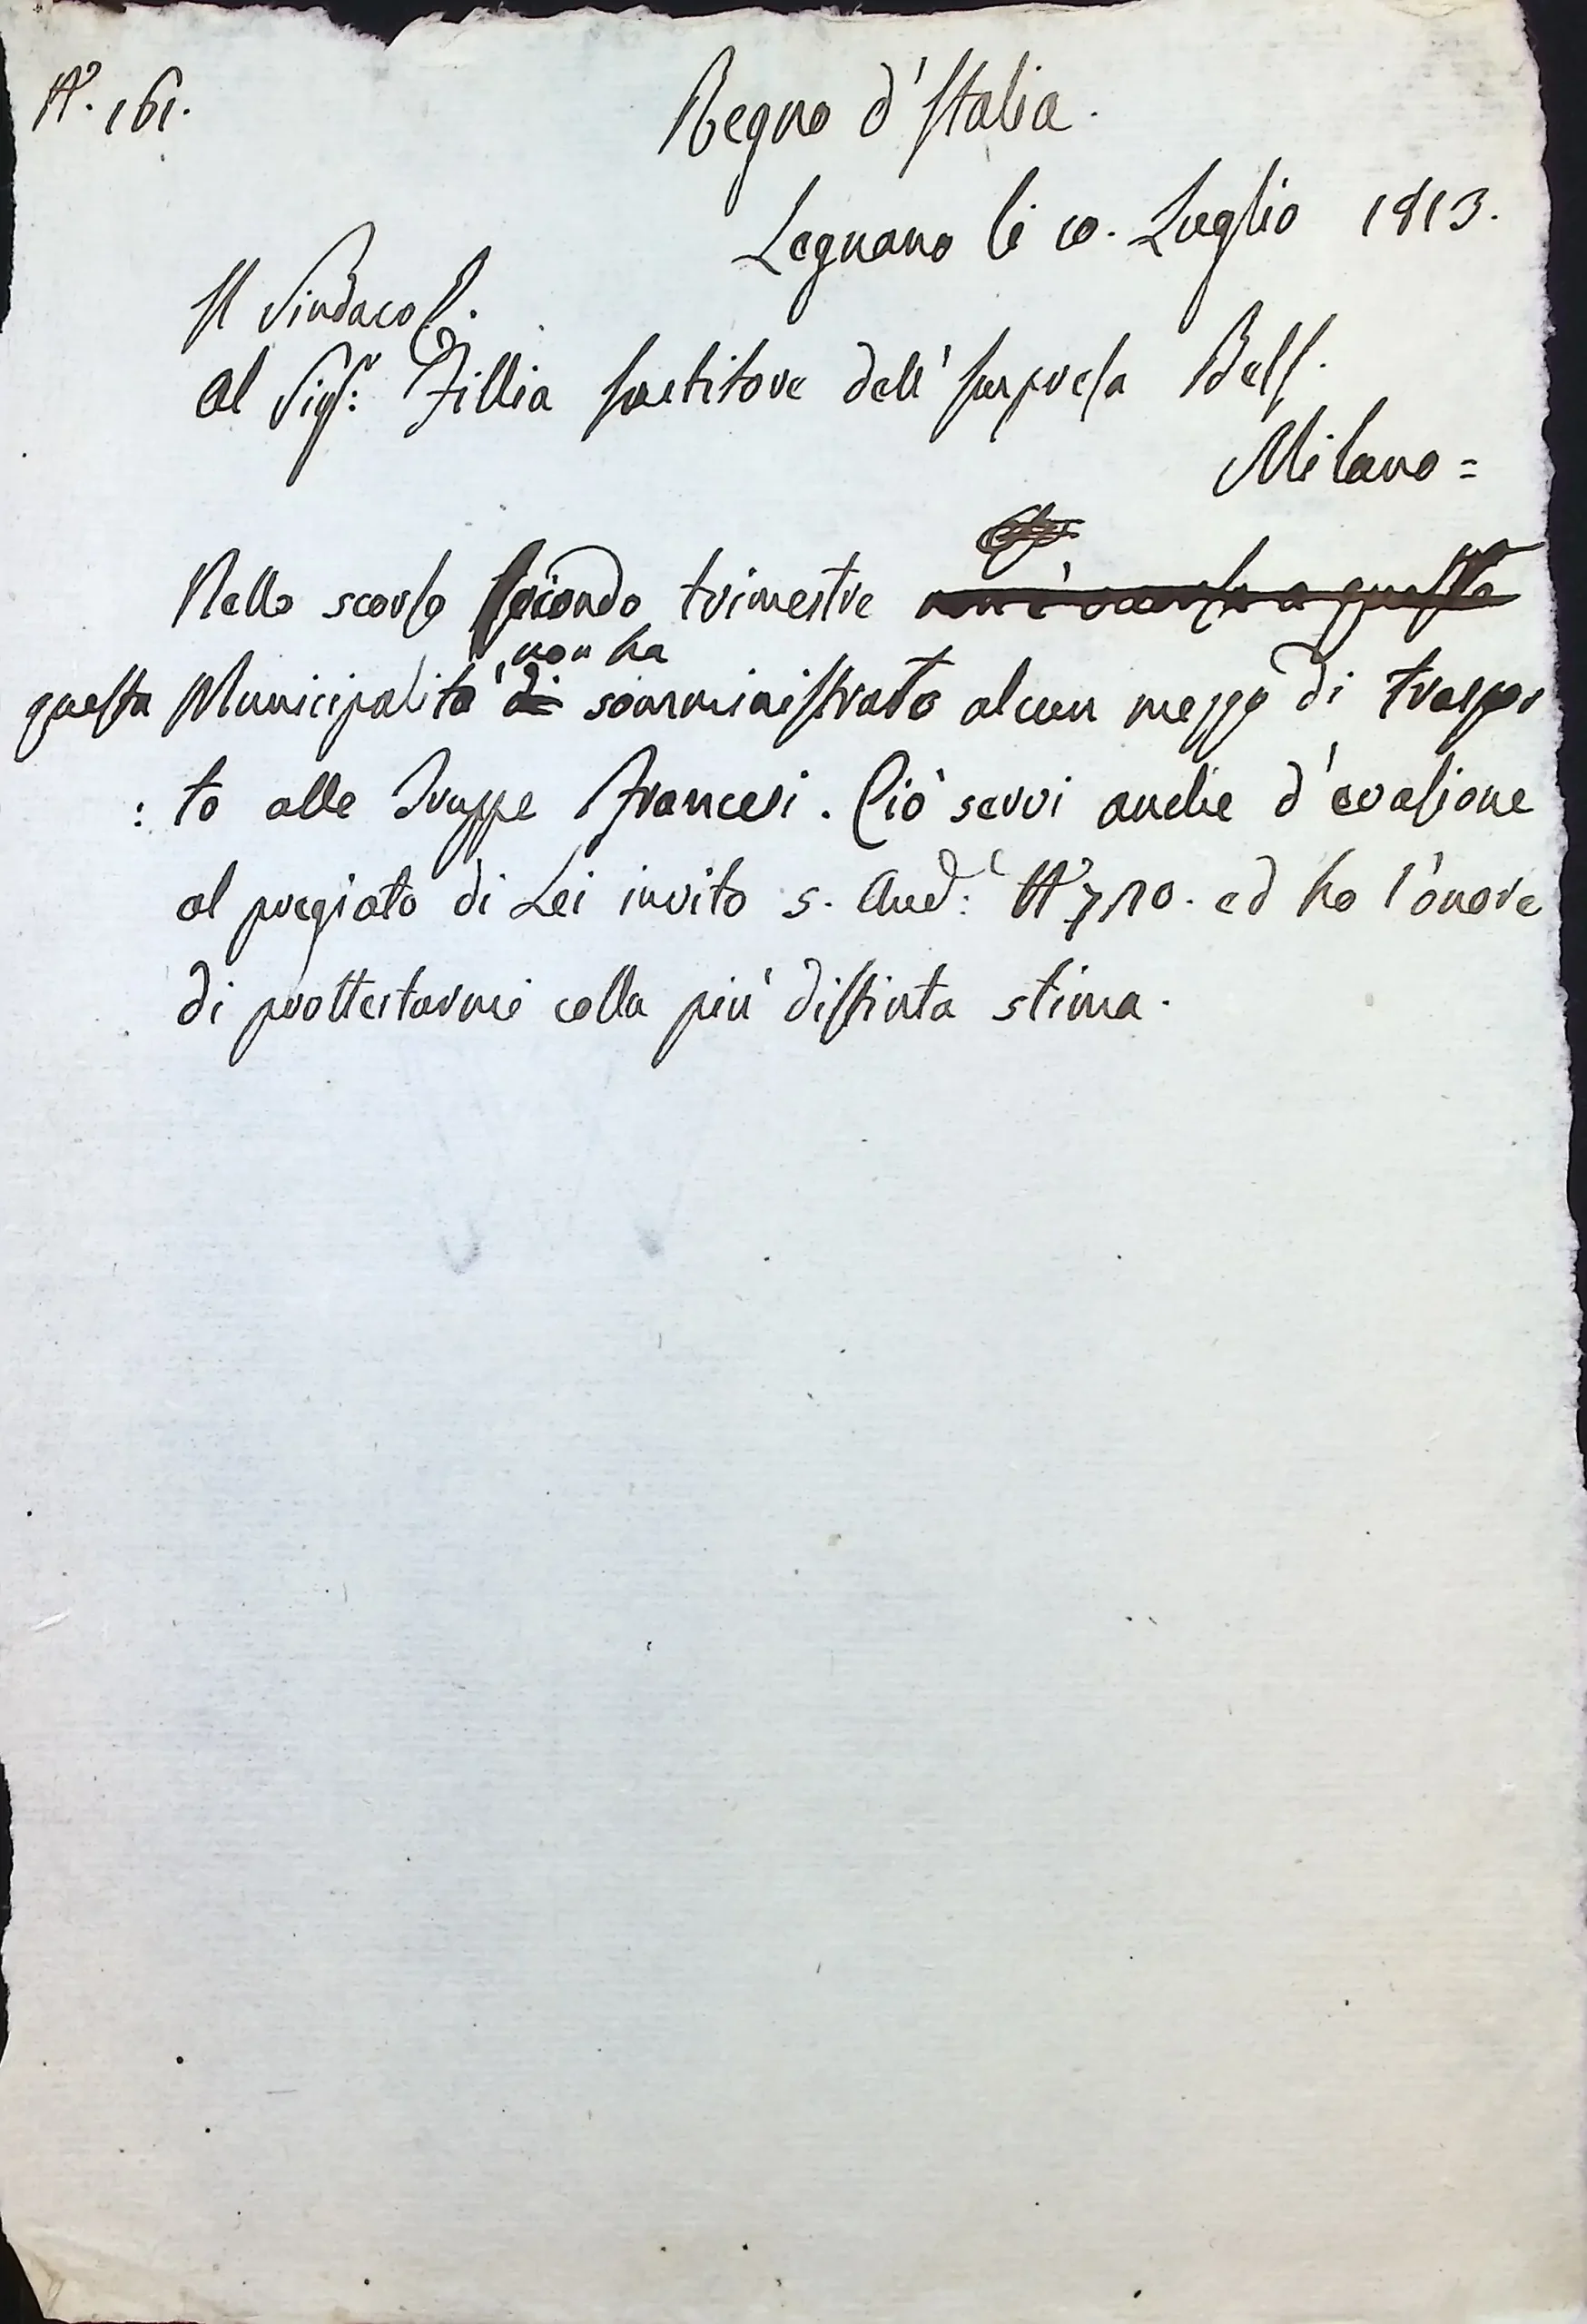 N.° 161.
Regno d'Italia.
Legnano li 10. Luglio 1813.
Il Sindaco
Al Sig.r: Fillia sortitore dell' Impresa Bell.
Milano =
Nello scorso secondo trimestre non è occorso a questa
non ha
questa Municipalità di somministrato alcun mezzo di traspor
: to alle Truppe Francesi. Ciò servi anche d'evasione
al pregiato di Lei invito 5. And: N° 710. ed ho l'onore
di prottestarmi colla più distinta stima.